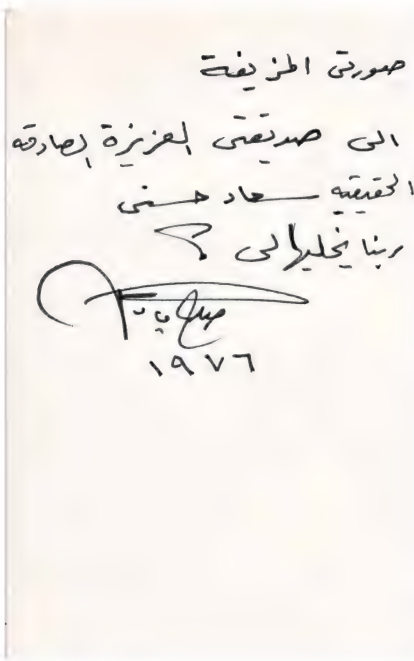 صورتى المزيفة
الى صديقتى العزيزة الصادقه
الحقيقيه سعاد حسنى
ربنا يخليهالى
صلاح
١٩٧٦